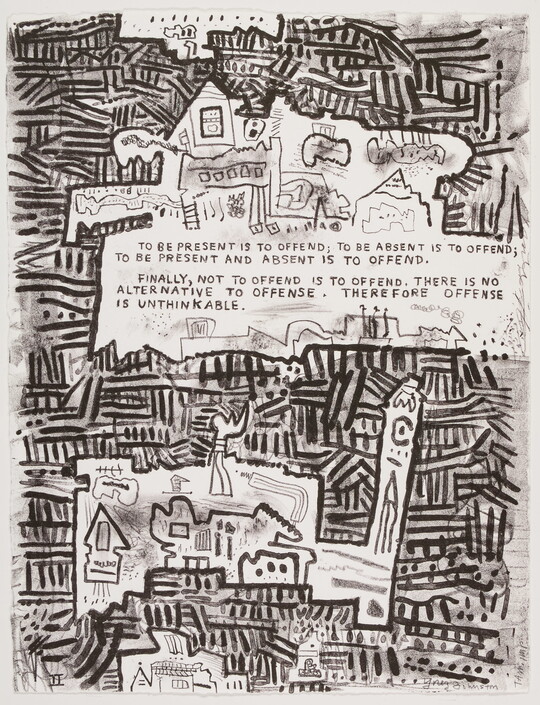 TO BE PRESENT IS TO OFFEND; TO BE ABSENT IS TO OFFEND;
TO BE PRESENT AND ABSENT IS TO OFFEND.
FINALLY, NOT TO OFFEND IS TO OFFEND. THERE IS NO
ALTERNATIVE TO OFFENSE. THEREFORE OFFENSE
IS UNTHINKABLE.
M
C
N
II